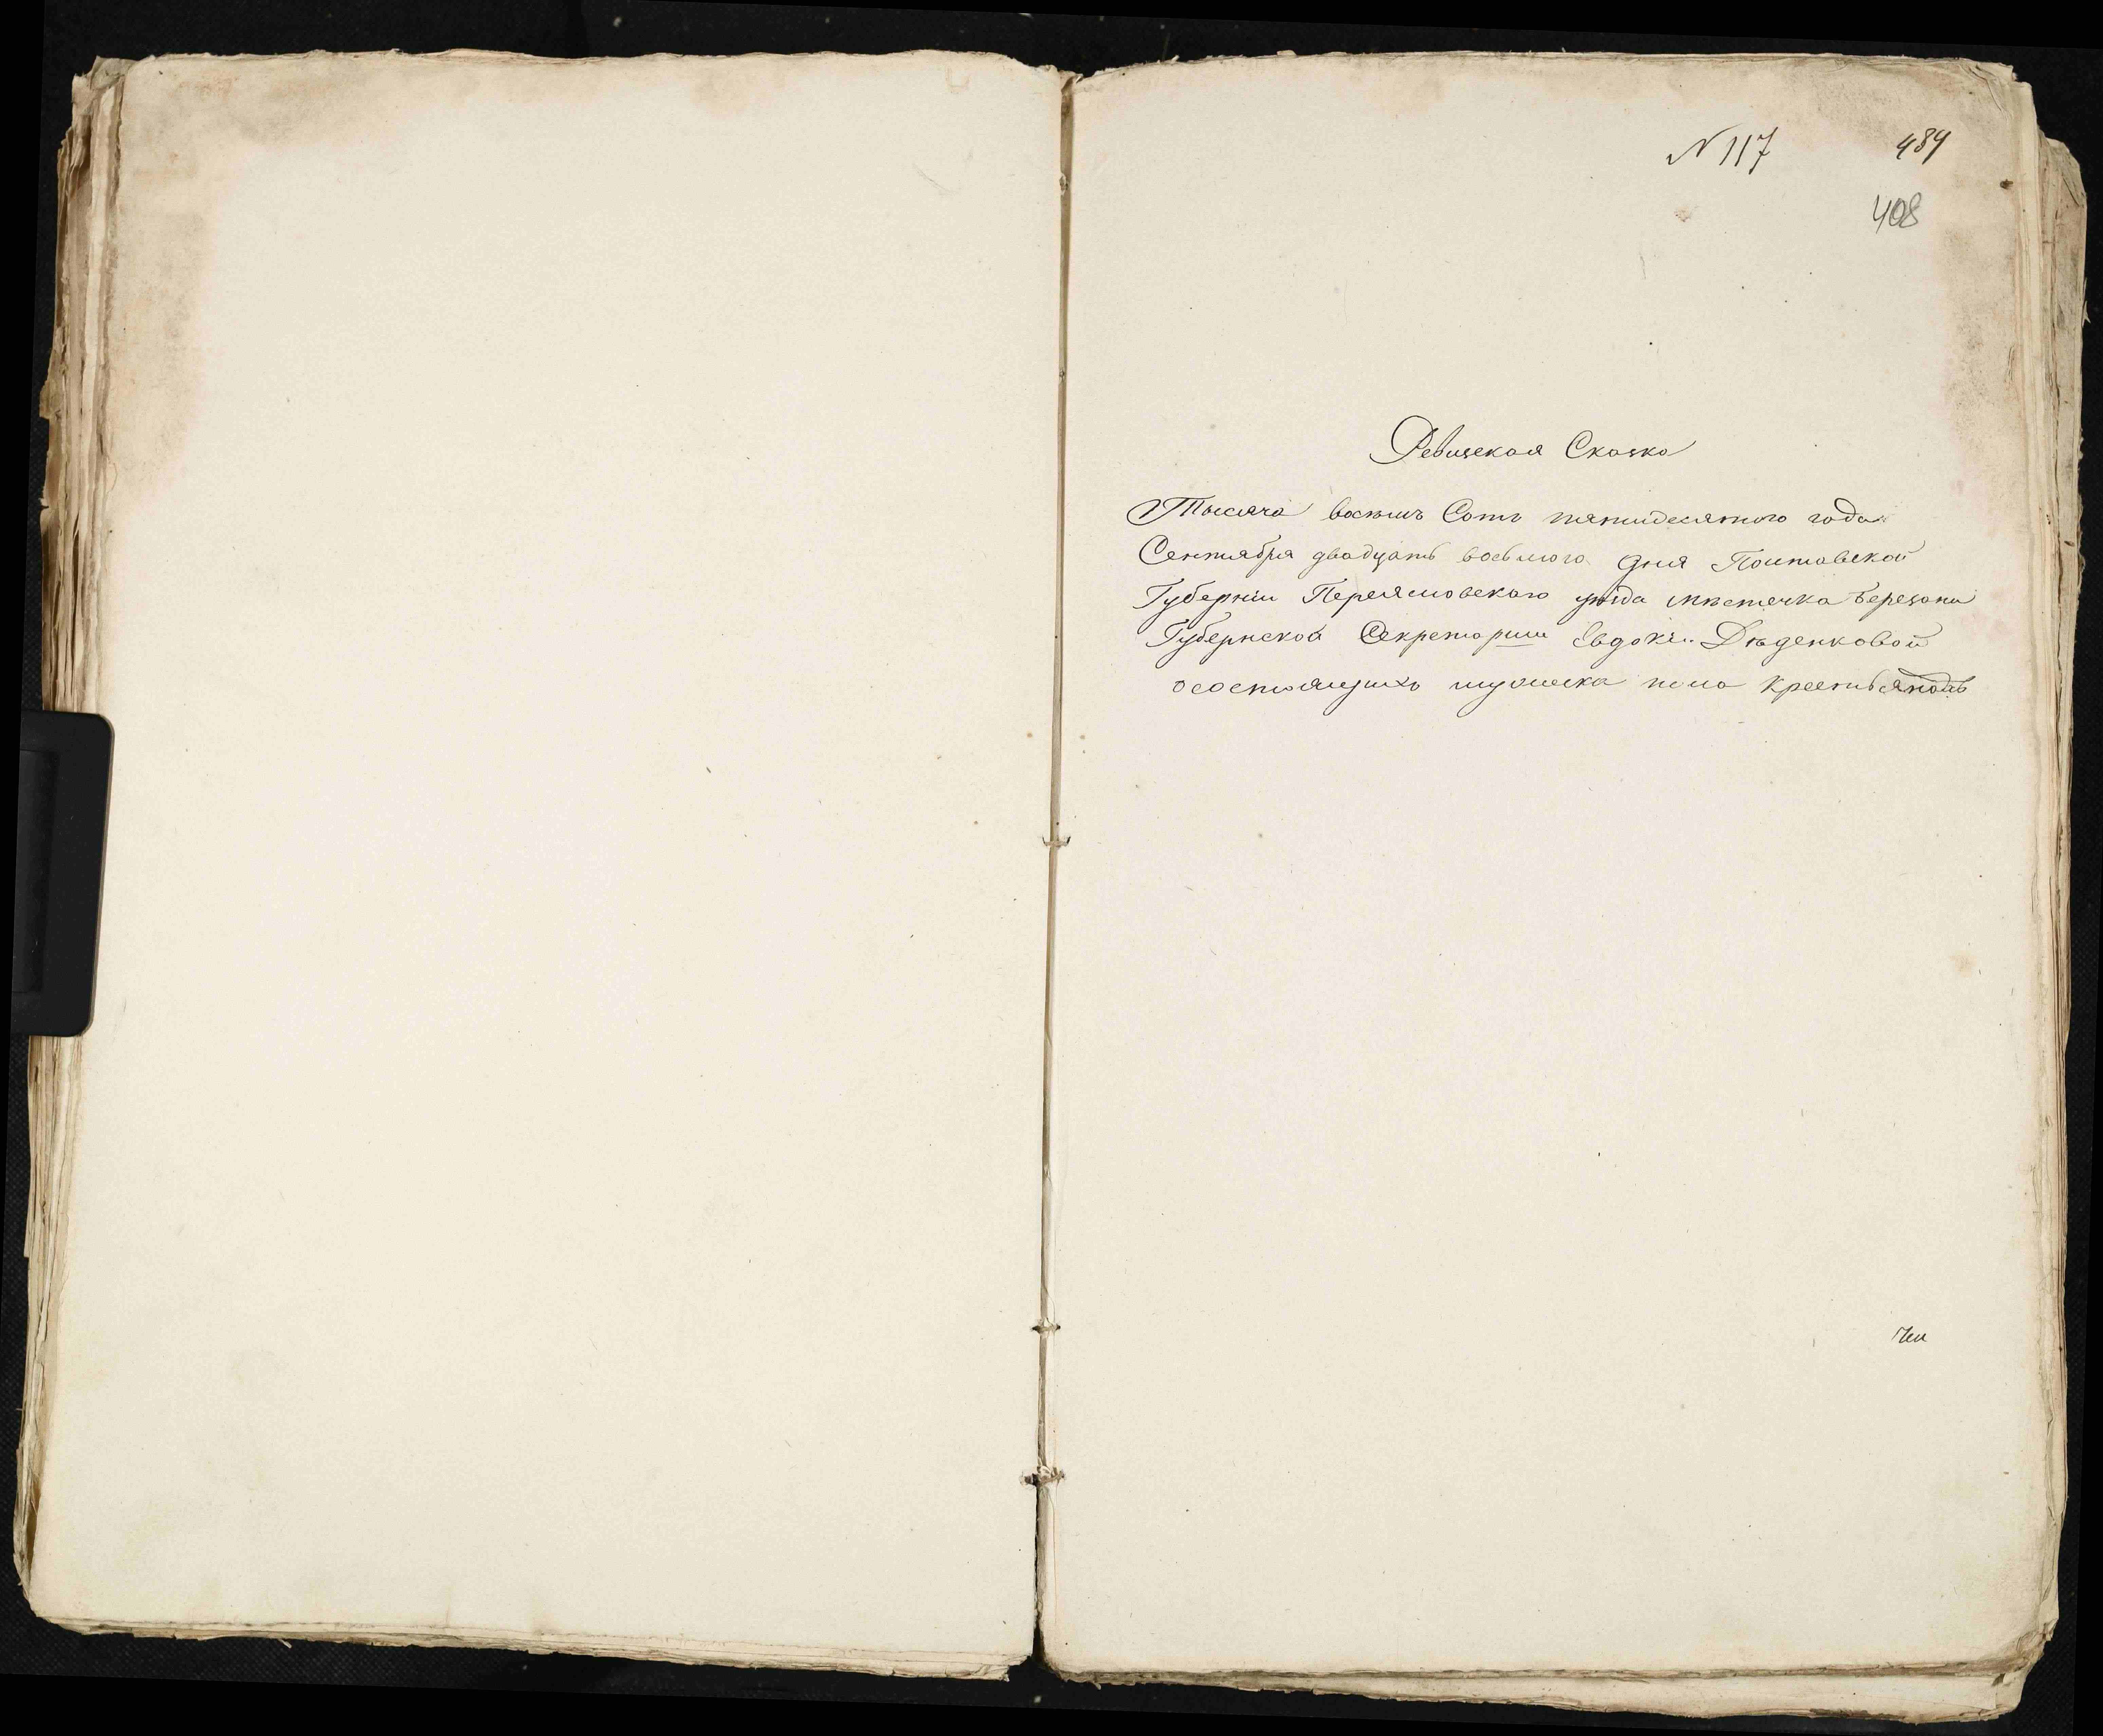 № 117 484
408
Ревизская Сказка
Тысяча восемъ Сотъ пятидесятого года
Сентября двадцать восьмого дня Полтавской
Губерніи Переясловскаго уѣзда мѣстечка Березани
Губернской Секретарши Евдокіи Дѣденковой
осостоящихъ мужеска пола крестьянахъ